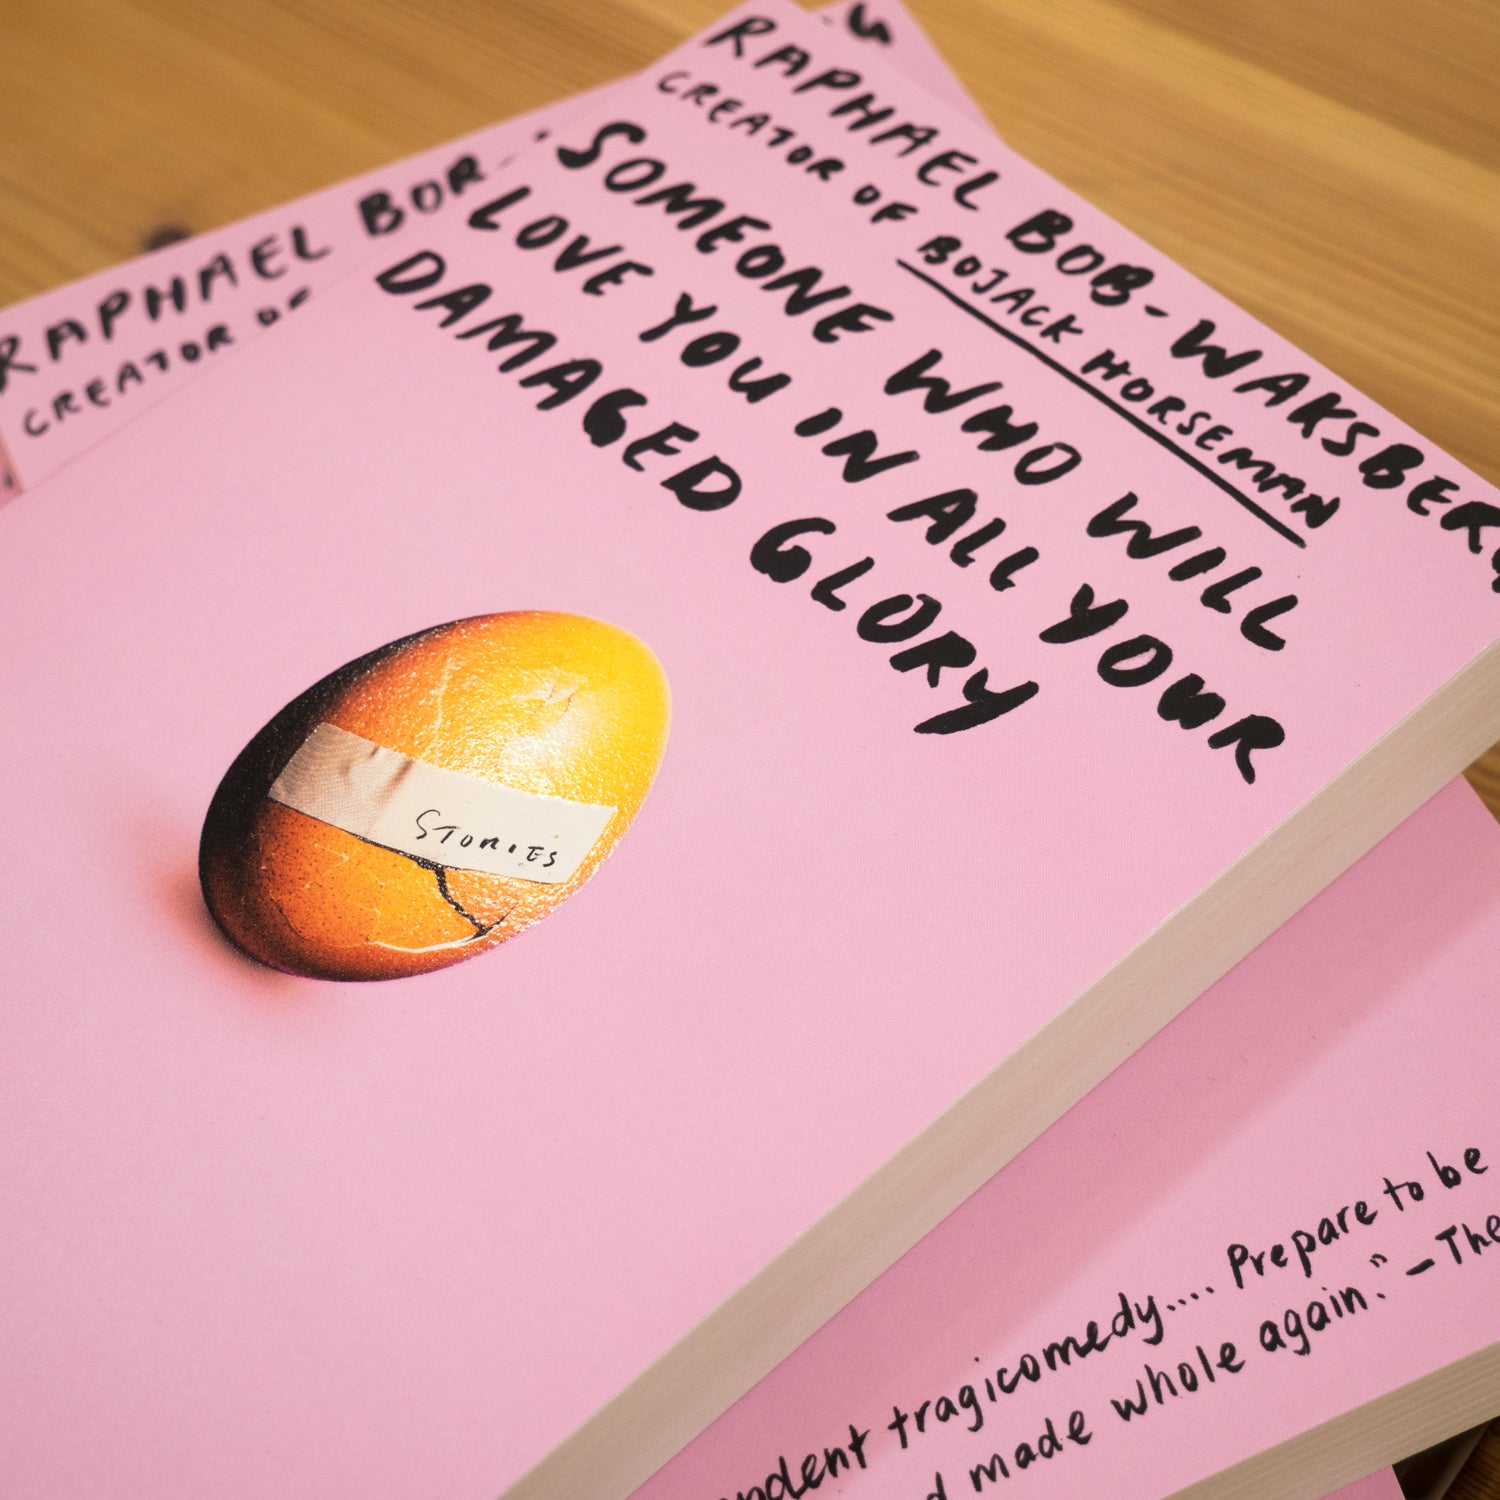 RAPHAEL BOB-WAKSBERG
CREATOR OF BOJACK HORSEMAN
SOMEONE WHO WILL
LOVE YOU IN ALL YOUR
DAMAGED GLORY
STORIES
RAPHAEL BOB-
CREATOR OF
tragicomedy.... Prepare to be
made whole again." —The